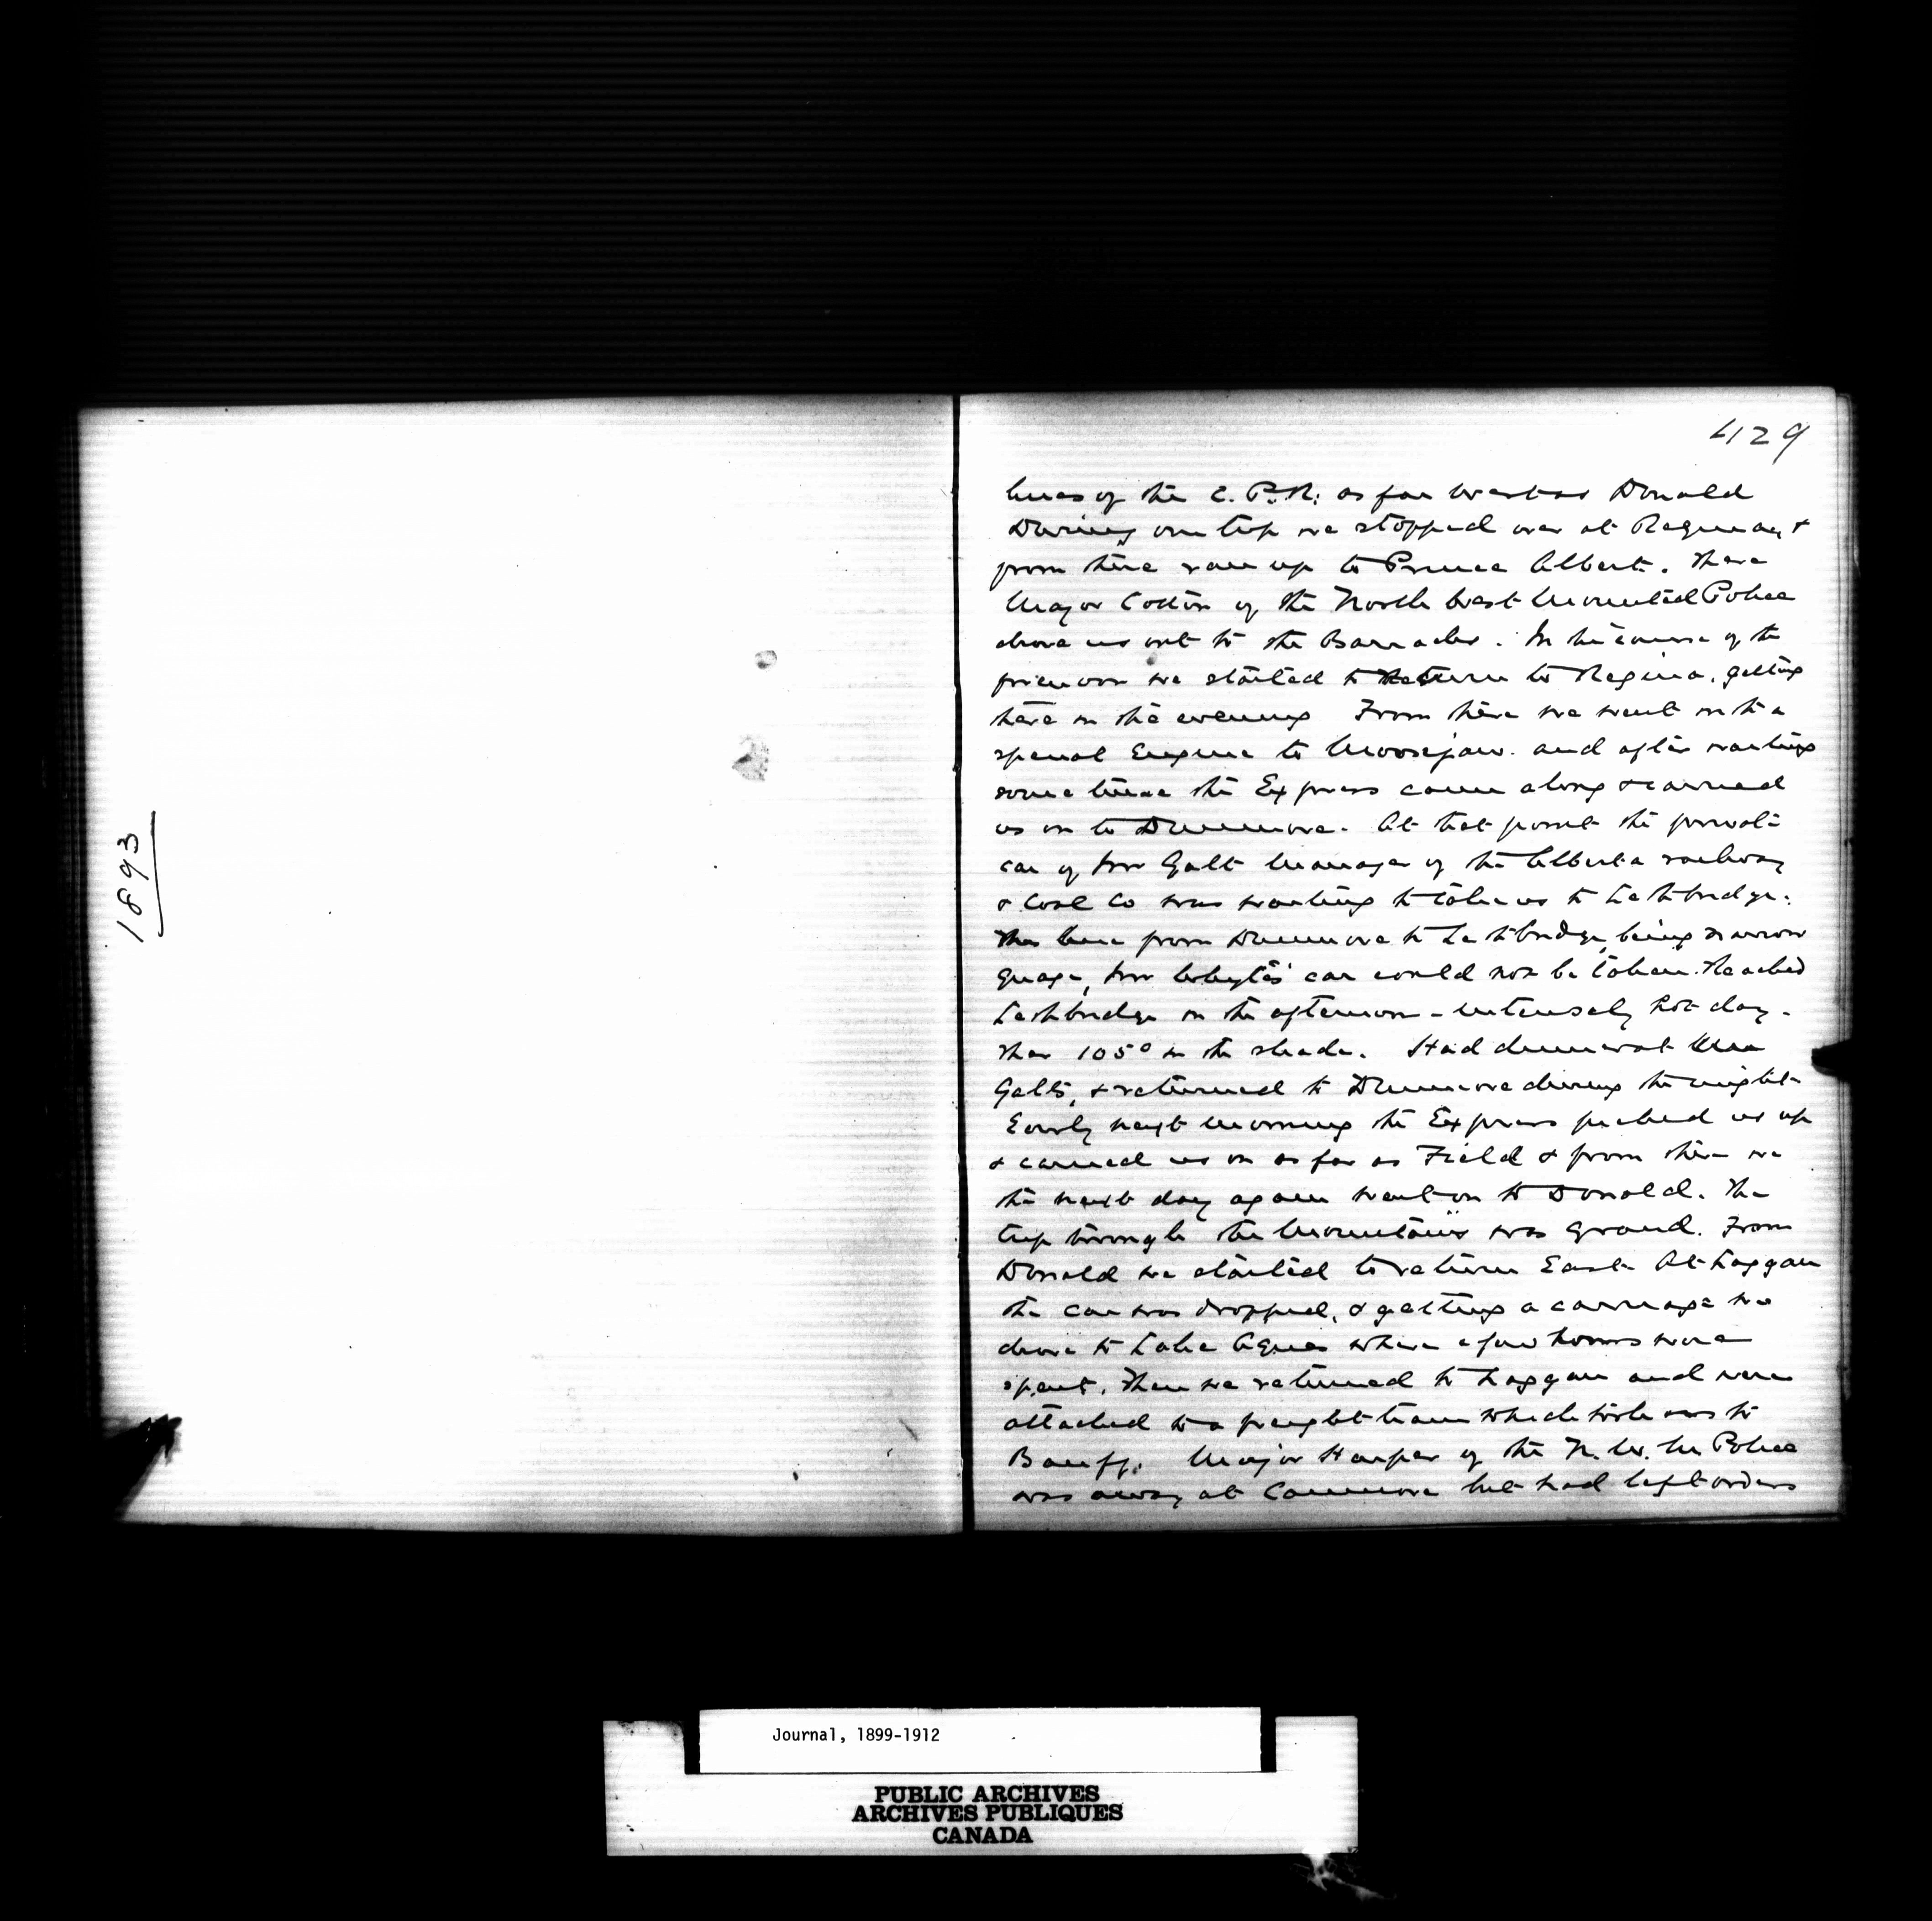 1893
429
lines of the C.P.R. as far west as Donald
During our trip we stopped over at Regina, &
from there ran up to Prince Albert. There
Major Cotton of the North West Mounted Police
drove us out to the Barracks. In the course of the
forenoon we started to return to Regina, getting
there in the evening From there we went on to a
special Engine to Moosejaw. and after waiting
some time the Express came along & carried
us on to Dunmore. At that point the private
car of Mr Galt Manager of the Alberta railway
& Coal Co was waiting to take us to Lethbridge.
The line from Dunmore to Lethbridge, being narrow
guage, Mr Whyte's car could not be taken. Reached
Lethbridge in the afternoon - intensely hot day.
Ther 105° in the shade. Had dinner at
Galts, & returned to Dunmore during the night.
Early next morning the Express picked us up
& carried us on as far as Field & from there we
the next day again went on to Donald. The
trip through the Mountains was grand. From
Donald we started to return East At Laggan
the car was dropped, & getting a carriage we
drove to Lake Agnes where a few hours were
spent. Then we returned to Laggan and were
attached to a freight train which took us to
Banff. Major Harper of the N. W. M Police
was away at Canmore but had left orders
Journal, 1899-1912
PUBLIC ARCHIVES
ARCHIVES PUBLIQUES
CANADA